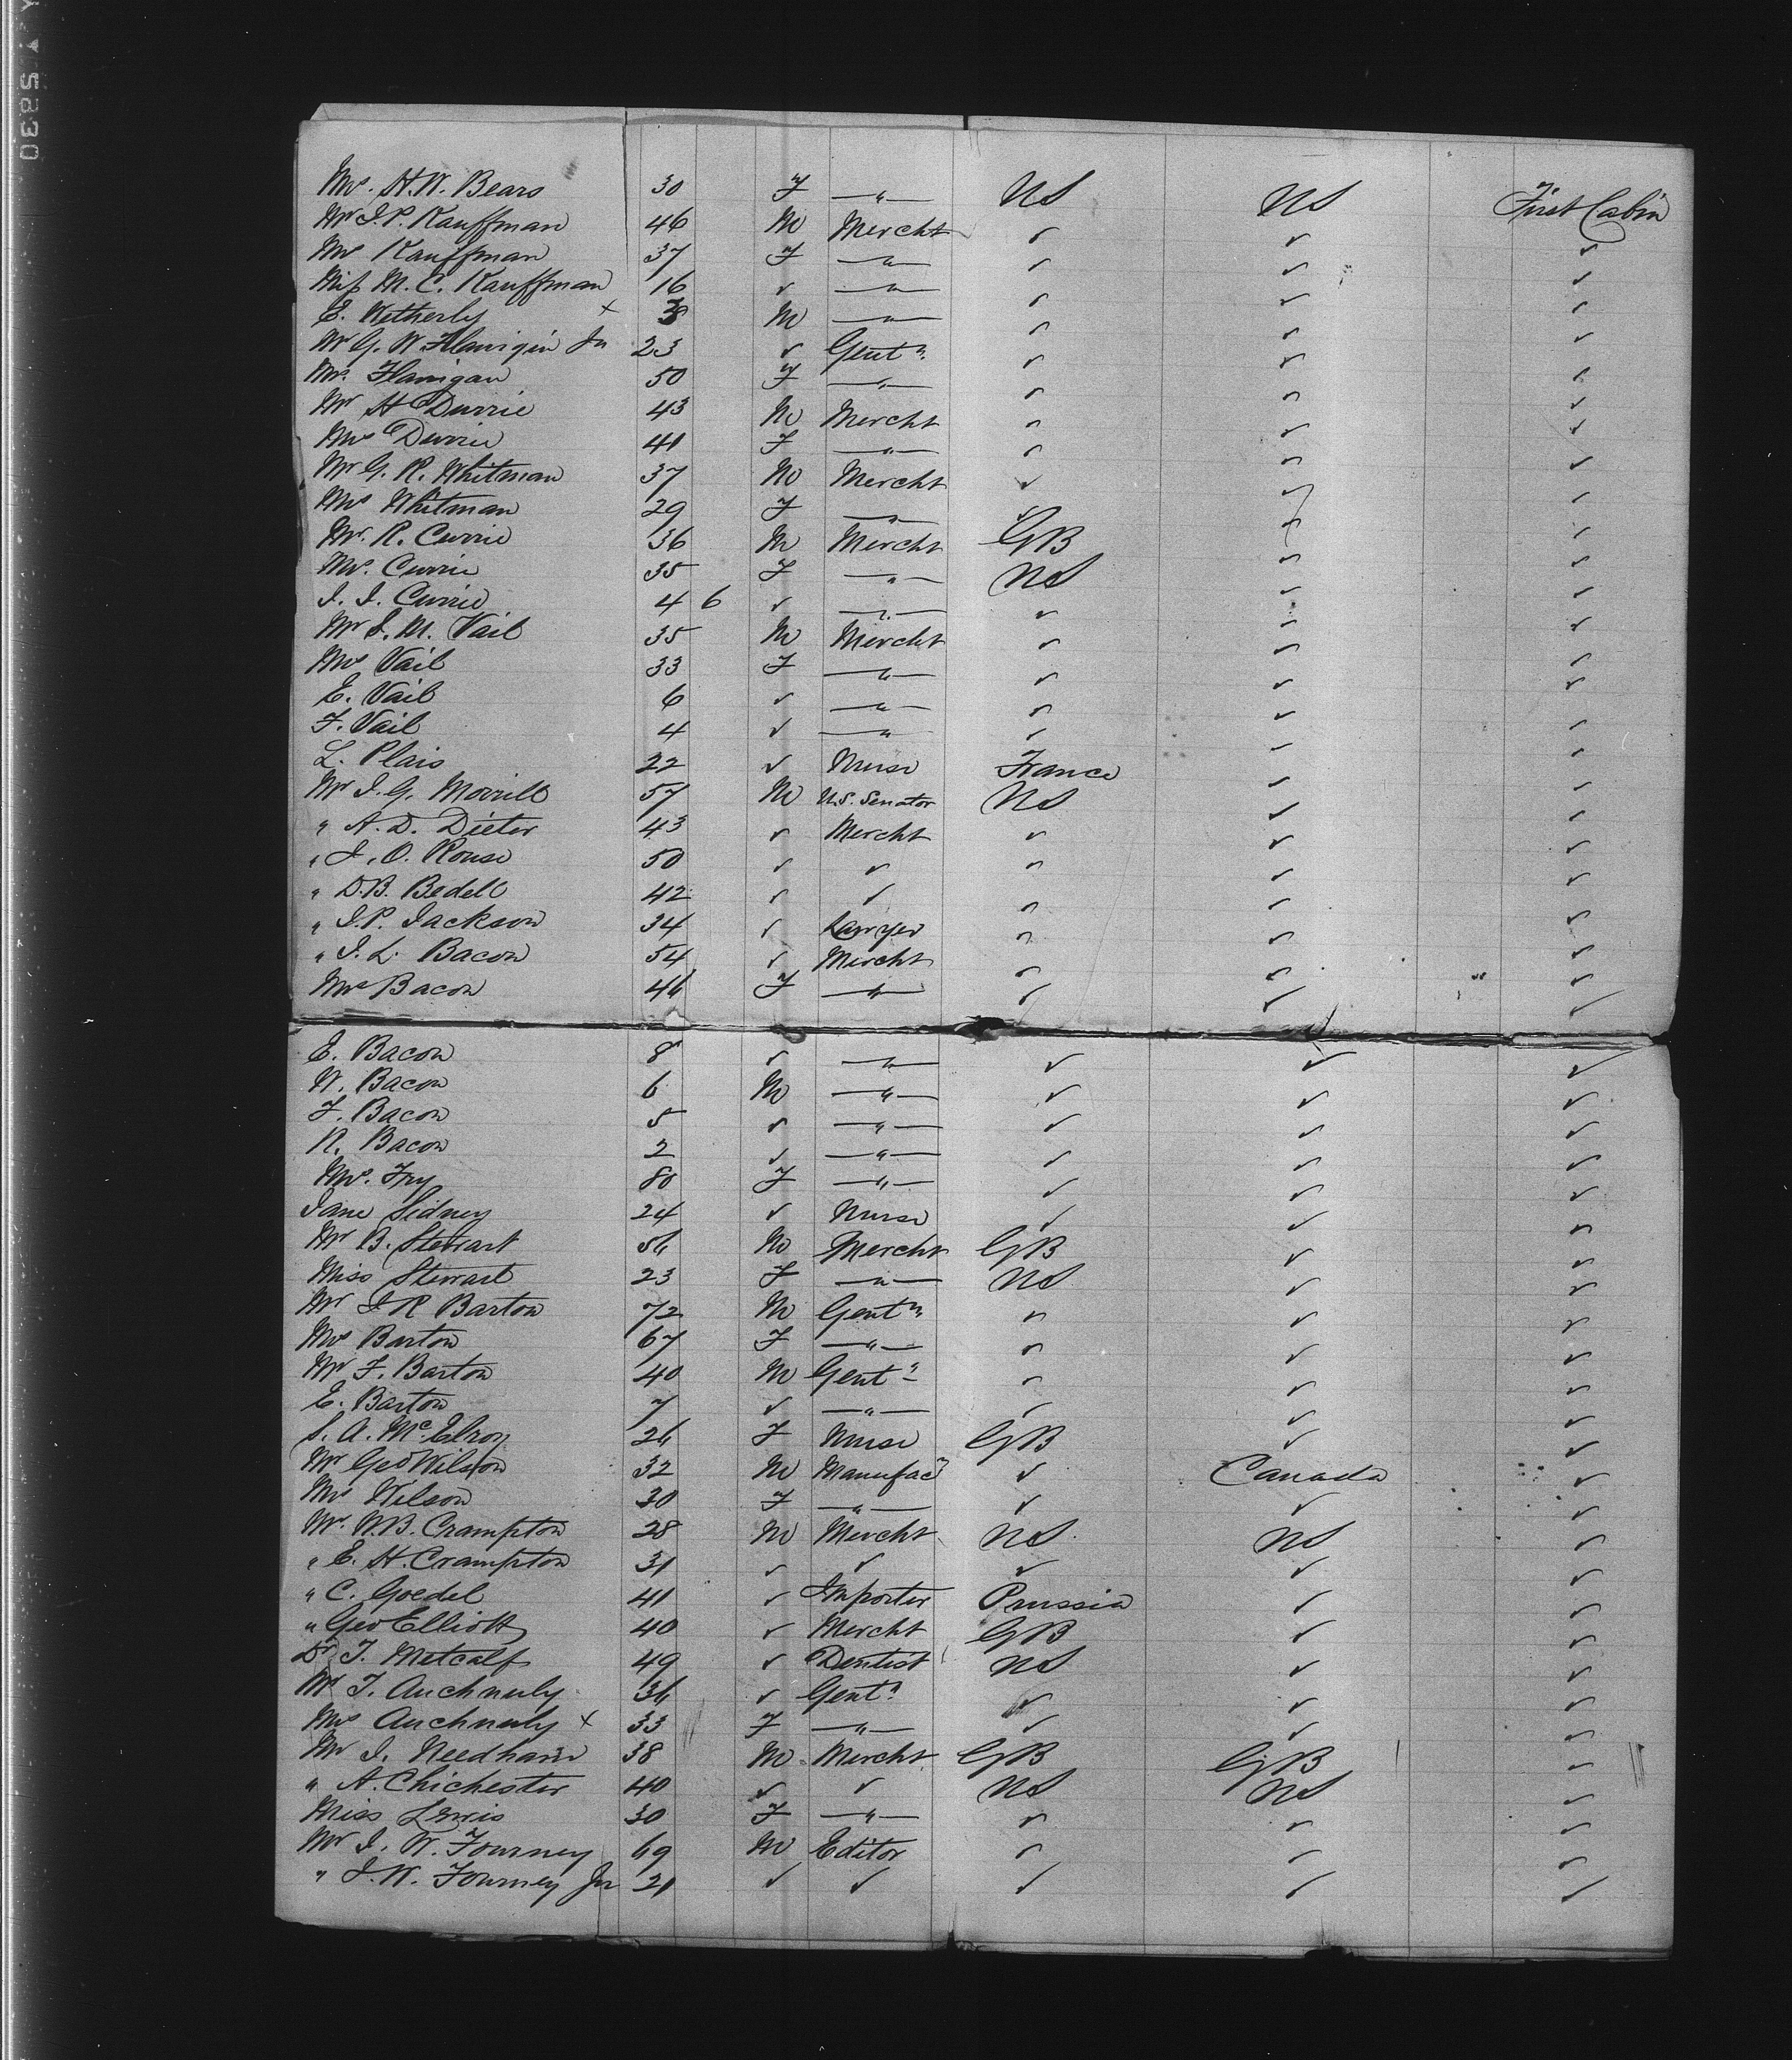 Mrs. H. W. Bears 30 F —"— US US First Cabin
Mr J. P. Kauffman 46 M Mercht ✓ ✓ ✓
Mrs Kauffman 37 F —"— ✓ ✓ ✓
Miss M. C. Kauffman 16 ✓ —"— ✓ ✓ ✓
E. Wetherly x M —"— ✓ ✓ ✓
Mr G. W Flanigin Jn 23 ✓ Gentn. ✓ ✓ ✓
Mrs. Flanigan 50 F —"— ✓ ✓ ✓
Mr H Durrie 43 M Mercht ✓ ✓ ✓
Mrs Durrie 41 F —"— ✓ ✓ ✓
Mr G. R. Whitman 37 M Mercht ✓ ✓ ✓
Mrs Whitman 29 F —"— ✓ ✓ ✓
Mr. R. Currie 36 M Mercht GB ✓ ✓
Mrs. Currie 35 F —"— US ✓ ✓
J. J. Currie 4 6 ✓ —"— ✓ ✓ ✓
Mr J. M. Vail 35 M Mercht ✓ ✓ ✓
Mrs Vail 33 F —"— ✓ ✓ ✓
E. Vail 6 ✓ —"— ✓ ✓ ✓
F. Vail 4 ✓ —"— ✓ ✓ ✓
L. Plais 22 ✓ Nurse France ✓ ✓
Mr J. G. Morrill 57 M U.S. Senator US ✓ ✓
" A. D. Dieter 43 ✓ Mercht ✓ ✓ ✓
" J. O. Rouse 50 ✓ ✓ ✓ ✓ ✓
" D. B. Bedell 42 ✓ ✓ ✓ ✓ ✓
" J. P. Jackson 34 ✓ Lawyer ✓ ✓ ✓
" J. L. Bacon 54 ✓ Mercht ✓ ✓ ✓
Mrs Bacon 46 F —"— ✓ ✓ ✓
E. Bacon 8 ✓ —"— ✓ ✓ ✓
W. Bacon 6 M —"— ✓ ✓ ✓
F. Bacon 5 ✓ —"— ✓ ✓ ✓
R. Bacon 2 ✓ —"— ✓ ✓ ✓
Mrs. Fry 80 F —"— ✓ ✓ ✓
Jane Sidney 24 ✓ Nurse ✓ ✓ ✓
Mr B. Stewart 56 M Mercht GB ✓ ✓
Miss Stewart 23 F —"— US ✓ ✓
Mr J R Barton 72 M Gentn ✓ ✓ ✓
Mrs Barton 67 F —"— ✓ ✓ ✓
Mr F. Barton 40 M Gentn ✓ ✓ ✓
E. Barton 7 ✓ —"— ✓ ✓ ✓
S. A. McElroy 26 F Nurse GB ✓ ✓
Mr Geo Wilson 32 M Manufacr ✓ Canada ✓
Mrs Wilson 30 F —"— ✓ ✓ ✓
Mr. W. B. Crampton 28 M Mercht US US ✓
" E. H. Crampton 31 ✓ ✓ ✓ ✓ ✓
" C. Goedel 41 ✓ Importer Prussia ✓ ✓
" Geo Elliott 40 ✓ Mercht GB ✓ ✓
Dr T. Metcalf 49 ✓ Dentist US ✓ ✓
Mr T. Auchnuly 36 ✓ Gentn ✓ ✓ ✓
Mrs Auchnuly x 33 F —"— ✓ ✓ ✓
Mr J. Needham 38 M Mercht GB GB ✓
" A. Chichester 40 ✓ ✓ US US ✓
Miss Lewis 30 F —"— ✓ ✓ ✓
Mr J. W. Fourney 69 M Editor ✓ ✓ ✓
" J. W. Fourney Jn 21 ✓ ✓ ✓ ✓ ✓